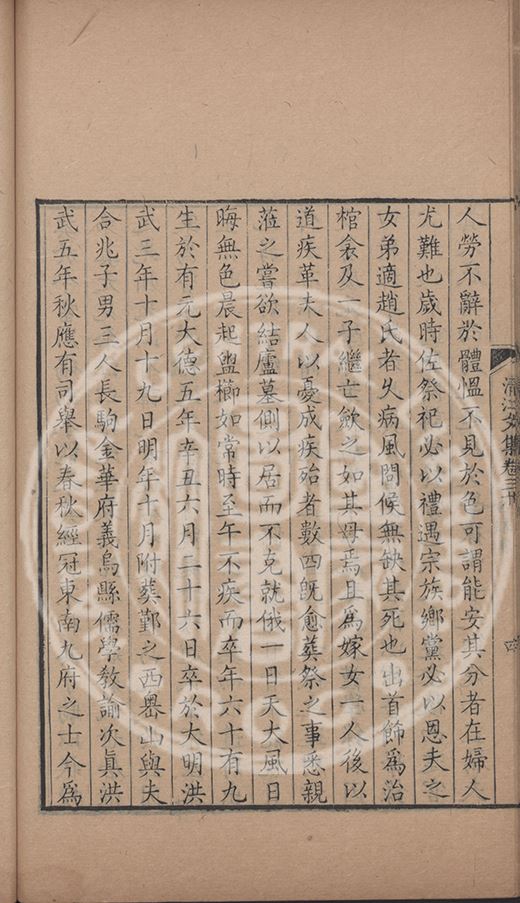 清江文集卷三十
人勞不辭於體慍不見於色可謂能安其分者在婦人
尤難也歲時佐祭祀必以禮遇宗族鄉黨必以恩夫之
女弟適趙氏者久病風問候無缺其死也出首飾為治
棺衾及一子繼亡歛之如其母焉且為嫁女一人後以
道疾革夫人以憂成疾殆者數四既愈葬祭之事悉親
蒞之嘗欲結廬墓側以居而不克就俄一日天大風日
晦無色晨起盥櫛如常時至午不疾而卒年六十有九
生於有元大德五年辛丑六月二十六日卒於大明洪
武三年十月十九日明年十月附葬鄞之西嶴山與夫
合兆子男三人長駒金華府義烏縣儒學敎諭次眞洪
武五年秋應有司舉以春秋經冠東南九府之士今為